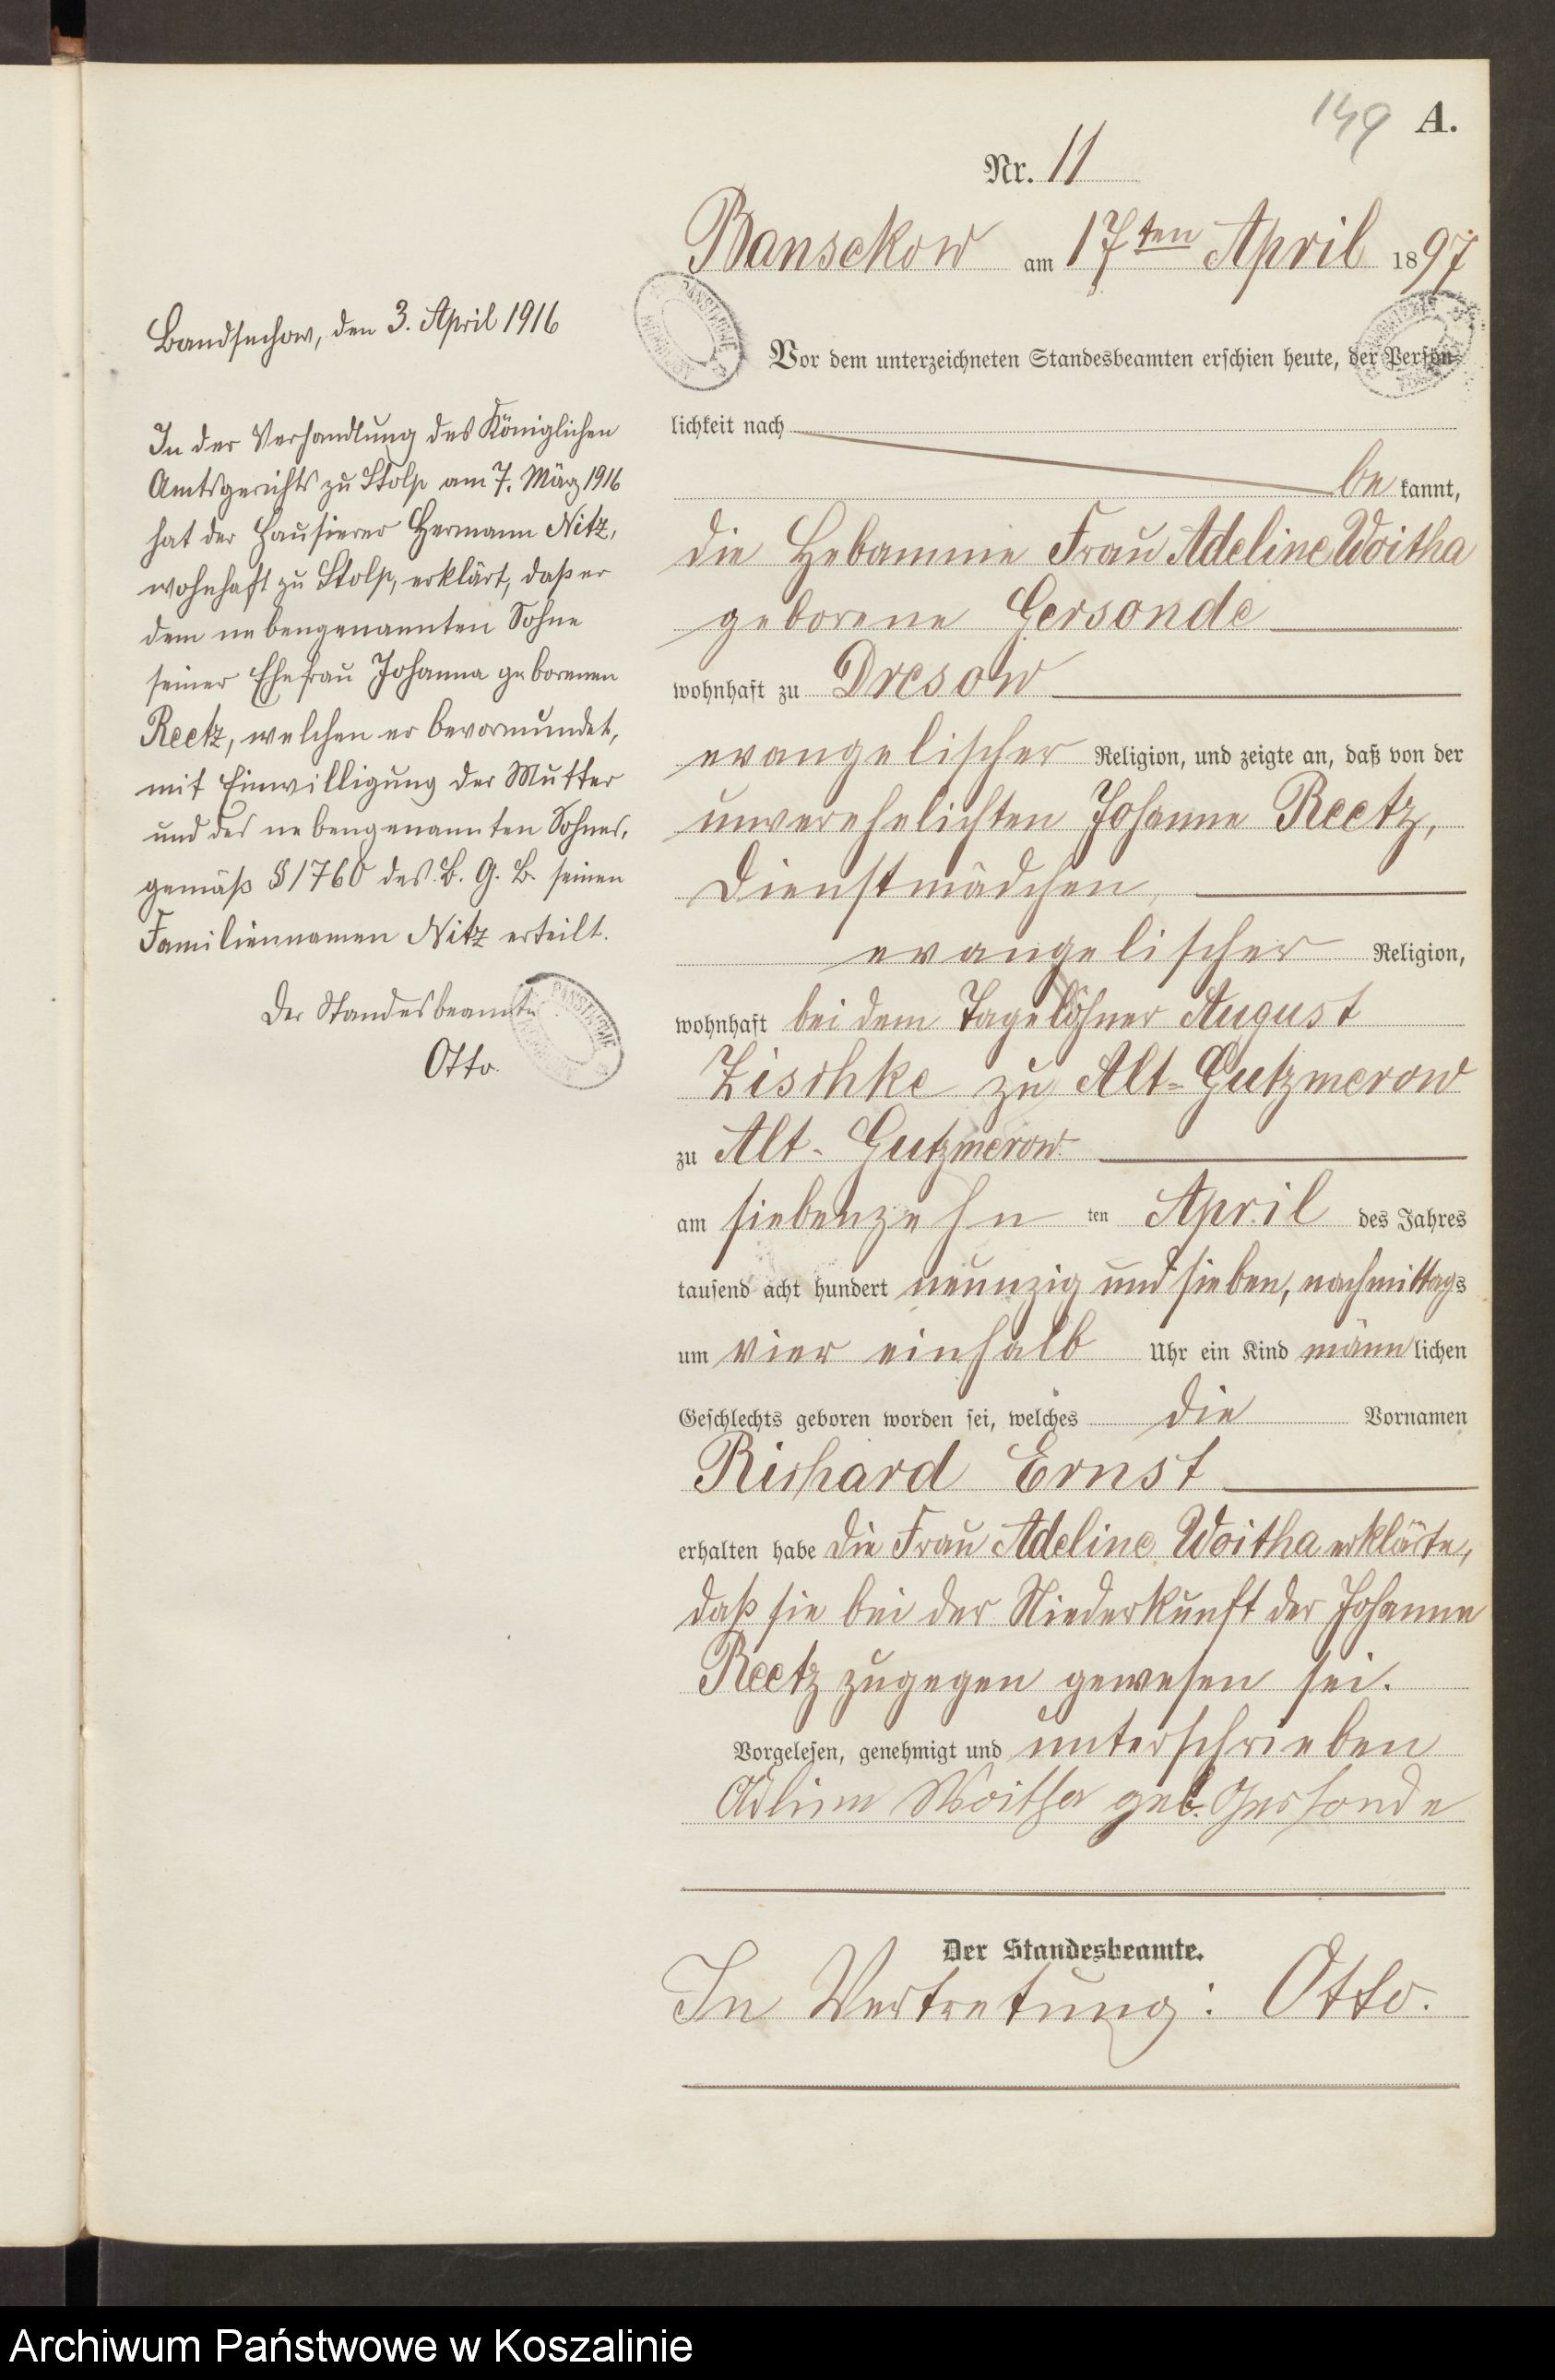 149 A.
Nr. 11
Bansekow am 17ten April 1897
Vor dem unterzeichneten Standesbeamten erschien heute, der Persön-
lichkeit nach
be kannt,
die Hebamme Frau Adeline Woitha
geborene Gersonde
wohnhaft zu Dresow
evangelischer Religion, und zeigte an, daß von der
unverehelichten Johanne Reetz,
Dienstmädchen,
evangelischer Religion,
wohnhaft bei dem Tagelöhner August
Zischke zu Alt-Gutzmerow
zu Alt-Gutzmerow
am siebenzehn ten April des Jahres
tausend acht hundert neunzig und sieben, nachmittags
um vier einhalb Uhr ein Kind männlichen
Geschlechts geboren worden sei, welches die Vornamen
Richard Ernst
erhalten habe Die Frau Adeline Woitha erklärte,
daß sie bei der Niederkunft der Johanne
Reetz zugegen gewesen sei.
Vorgelesen, genehmigt und unterschrieben
Adline Woitha geb. Gersonde
Der Standesbeamte.
In Vertretung: Otto.
Bandsechow, den 3. April 1916
In der Verhandlung des Königlichen
Amtsgerichts zu Stolp am 7. März 1916
hat der Hausierer Hermann Nitz,
wohnhaft zu Stolp, erklärt, daß er
dem nebengenannten Sohne
seiner Ehefrau Johanna geborenen
Reetz, welchen er bevormundet,
mit Einwilligung der Mutter
und des nebengenannten Sohnes,
gemäß § 1760 des B. G. B. seinen
Familiennamen Nitz erteilt.
Der Standesbeamte
Otto.
Archiwum Państwowe w Koszalinie